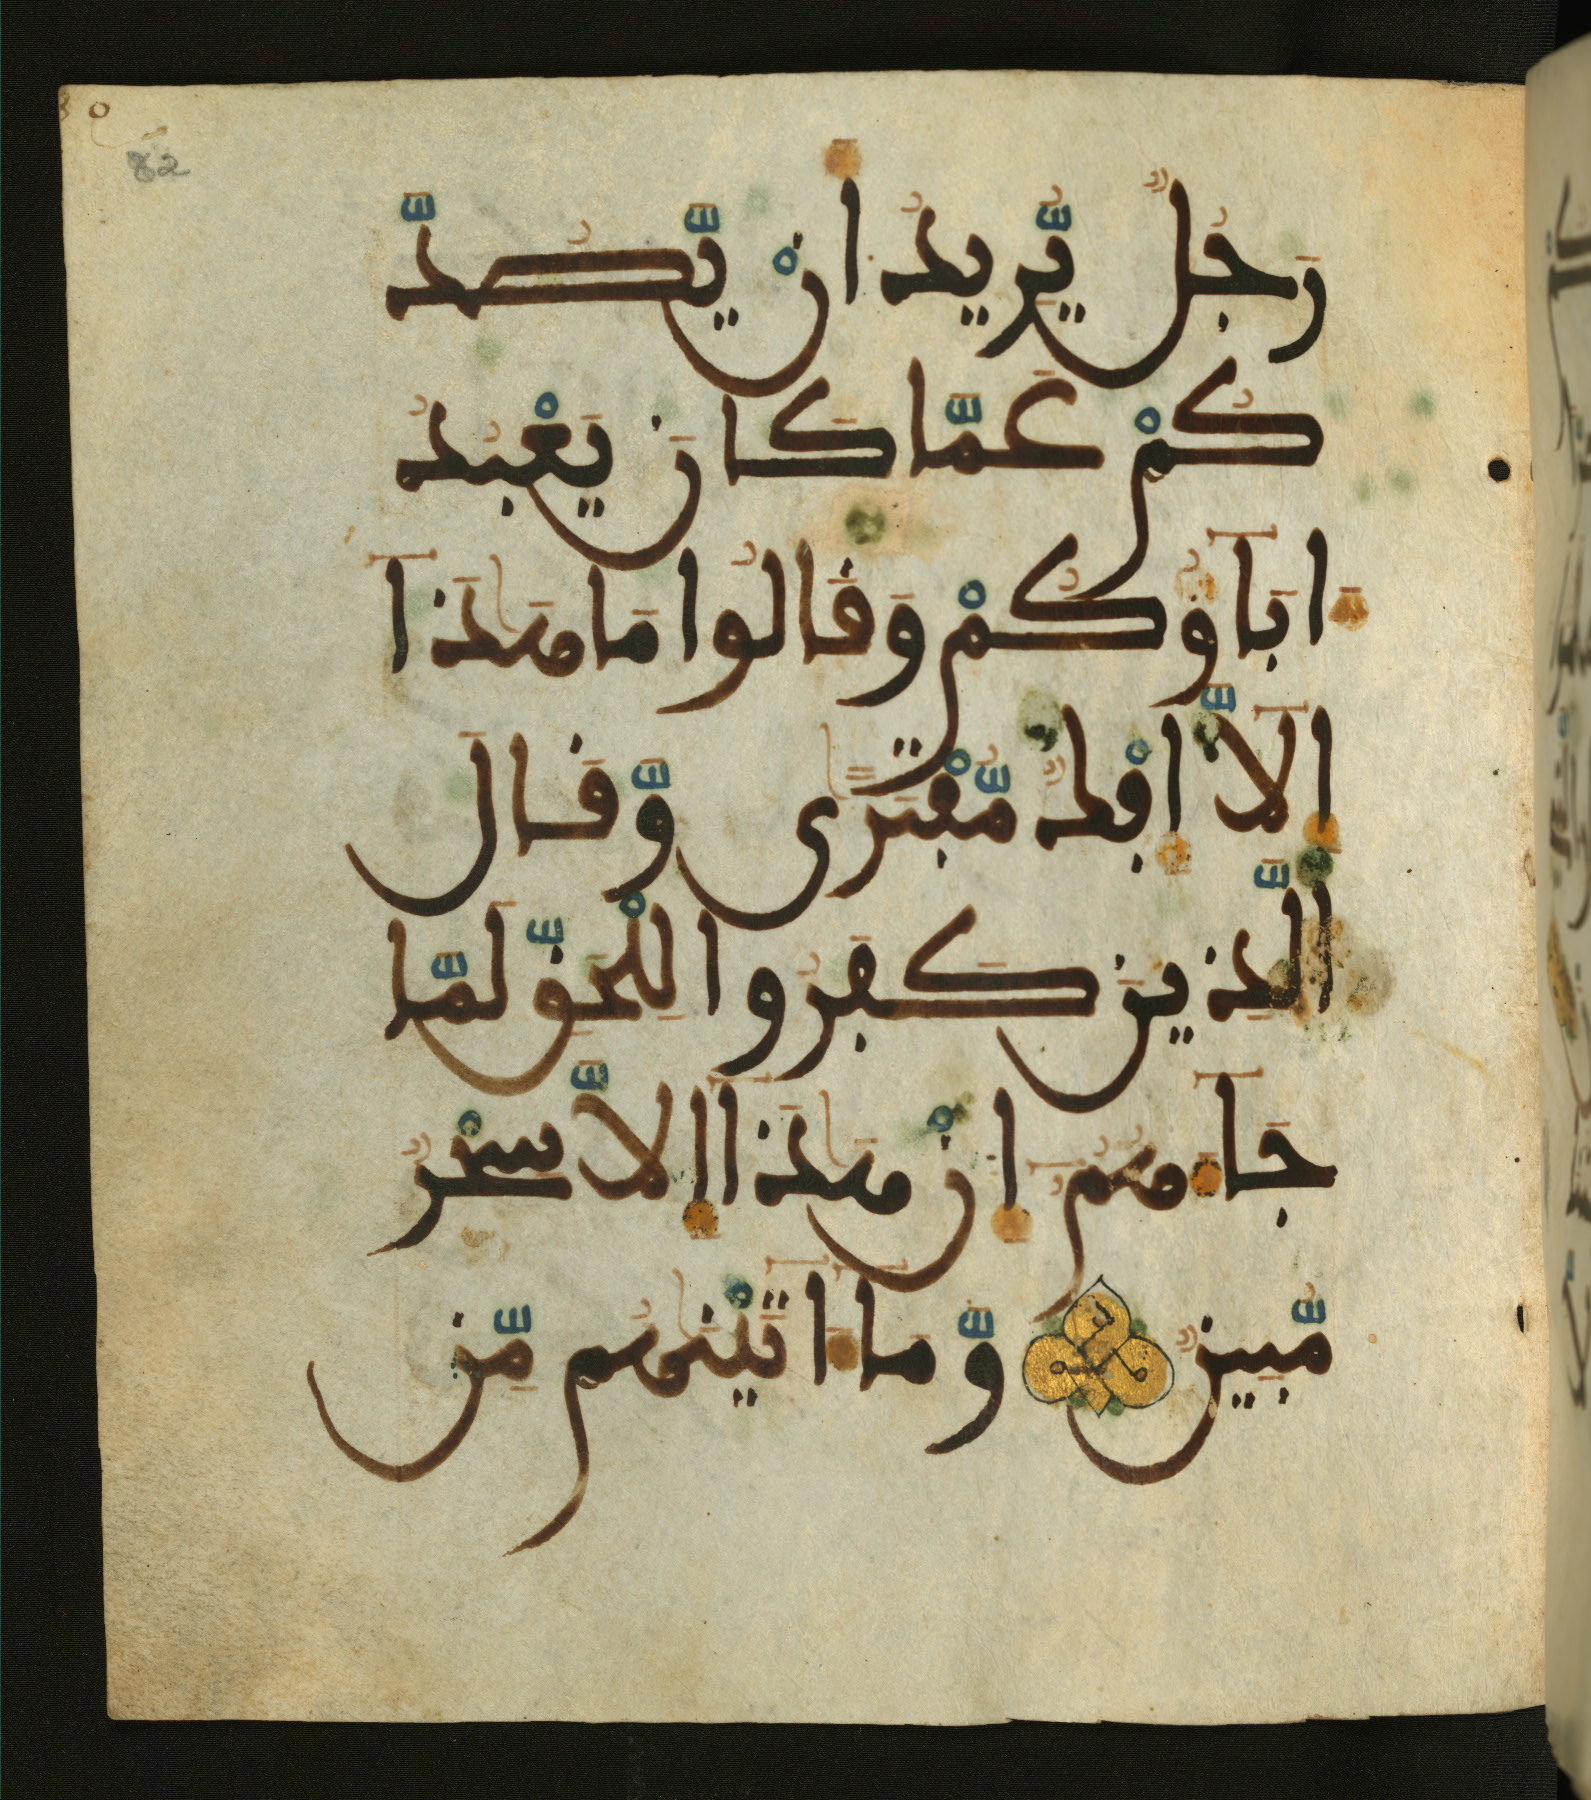 82
رَجُلٌ يُّرِيدُ أَنْ يَّصُدَّ
كُمْ عَمَّا كَانَ يَعْبُدُ
ءَابَآؤُكُمْ وَقَالُوا مَا هَٰذَآ
إِلَّآ إِفْكٌ مُّفْتَرًى وَّقَالَ
الَّذِينَ كَفَرُوا لِلْحَقِّ لَمَّا
جَآءَهُمُۥٓ إِنْ هَٰذَآ إِلَّا سِحْرٌ
مُّبِينٌ وَّمَآ ءَاتَيْنَٰهُم مِّن